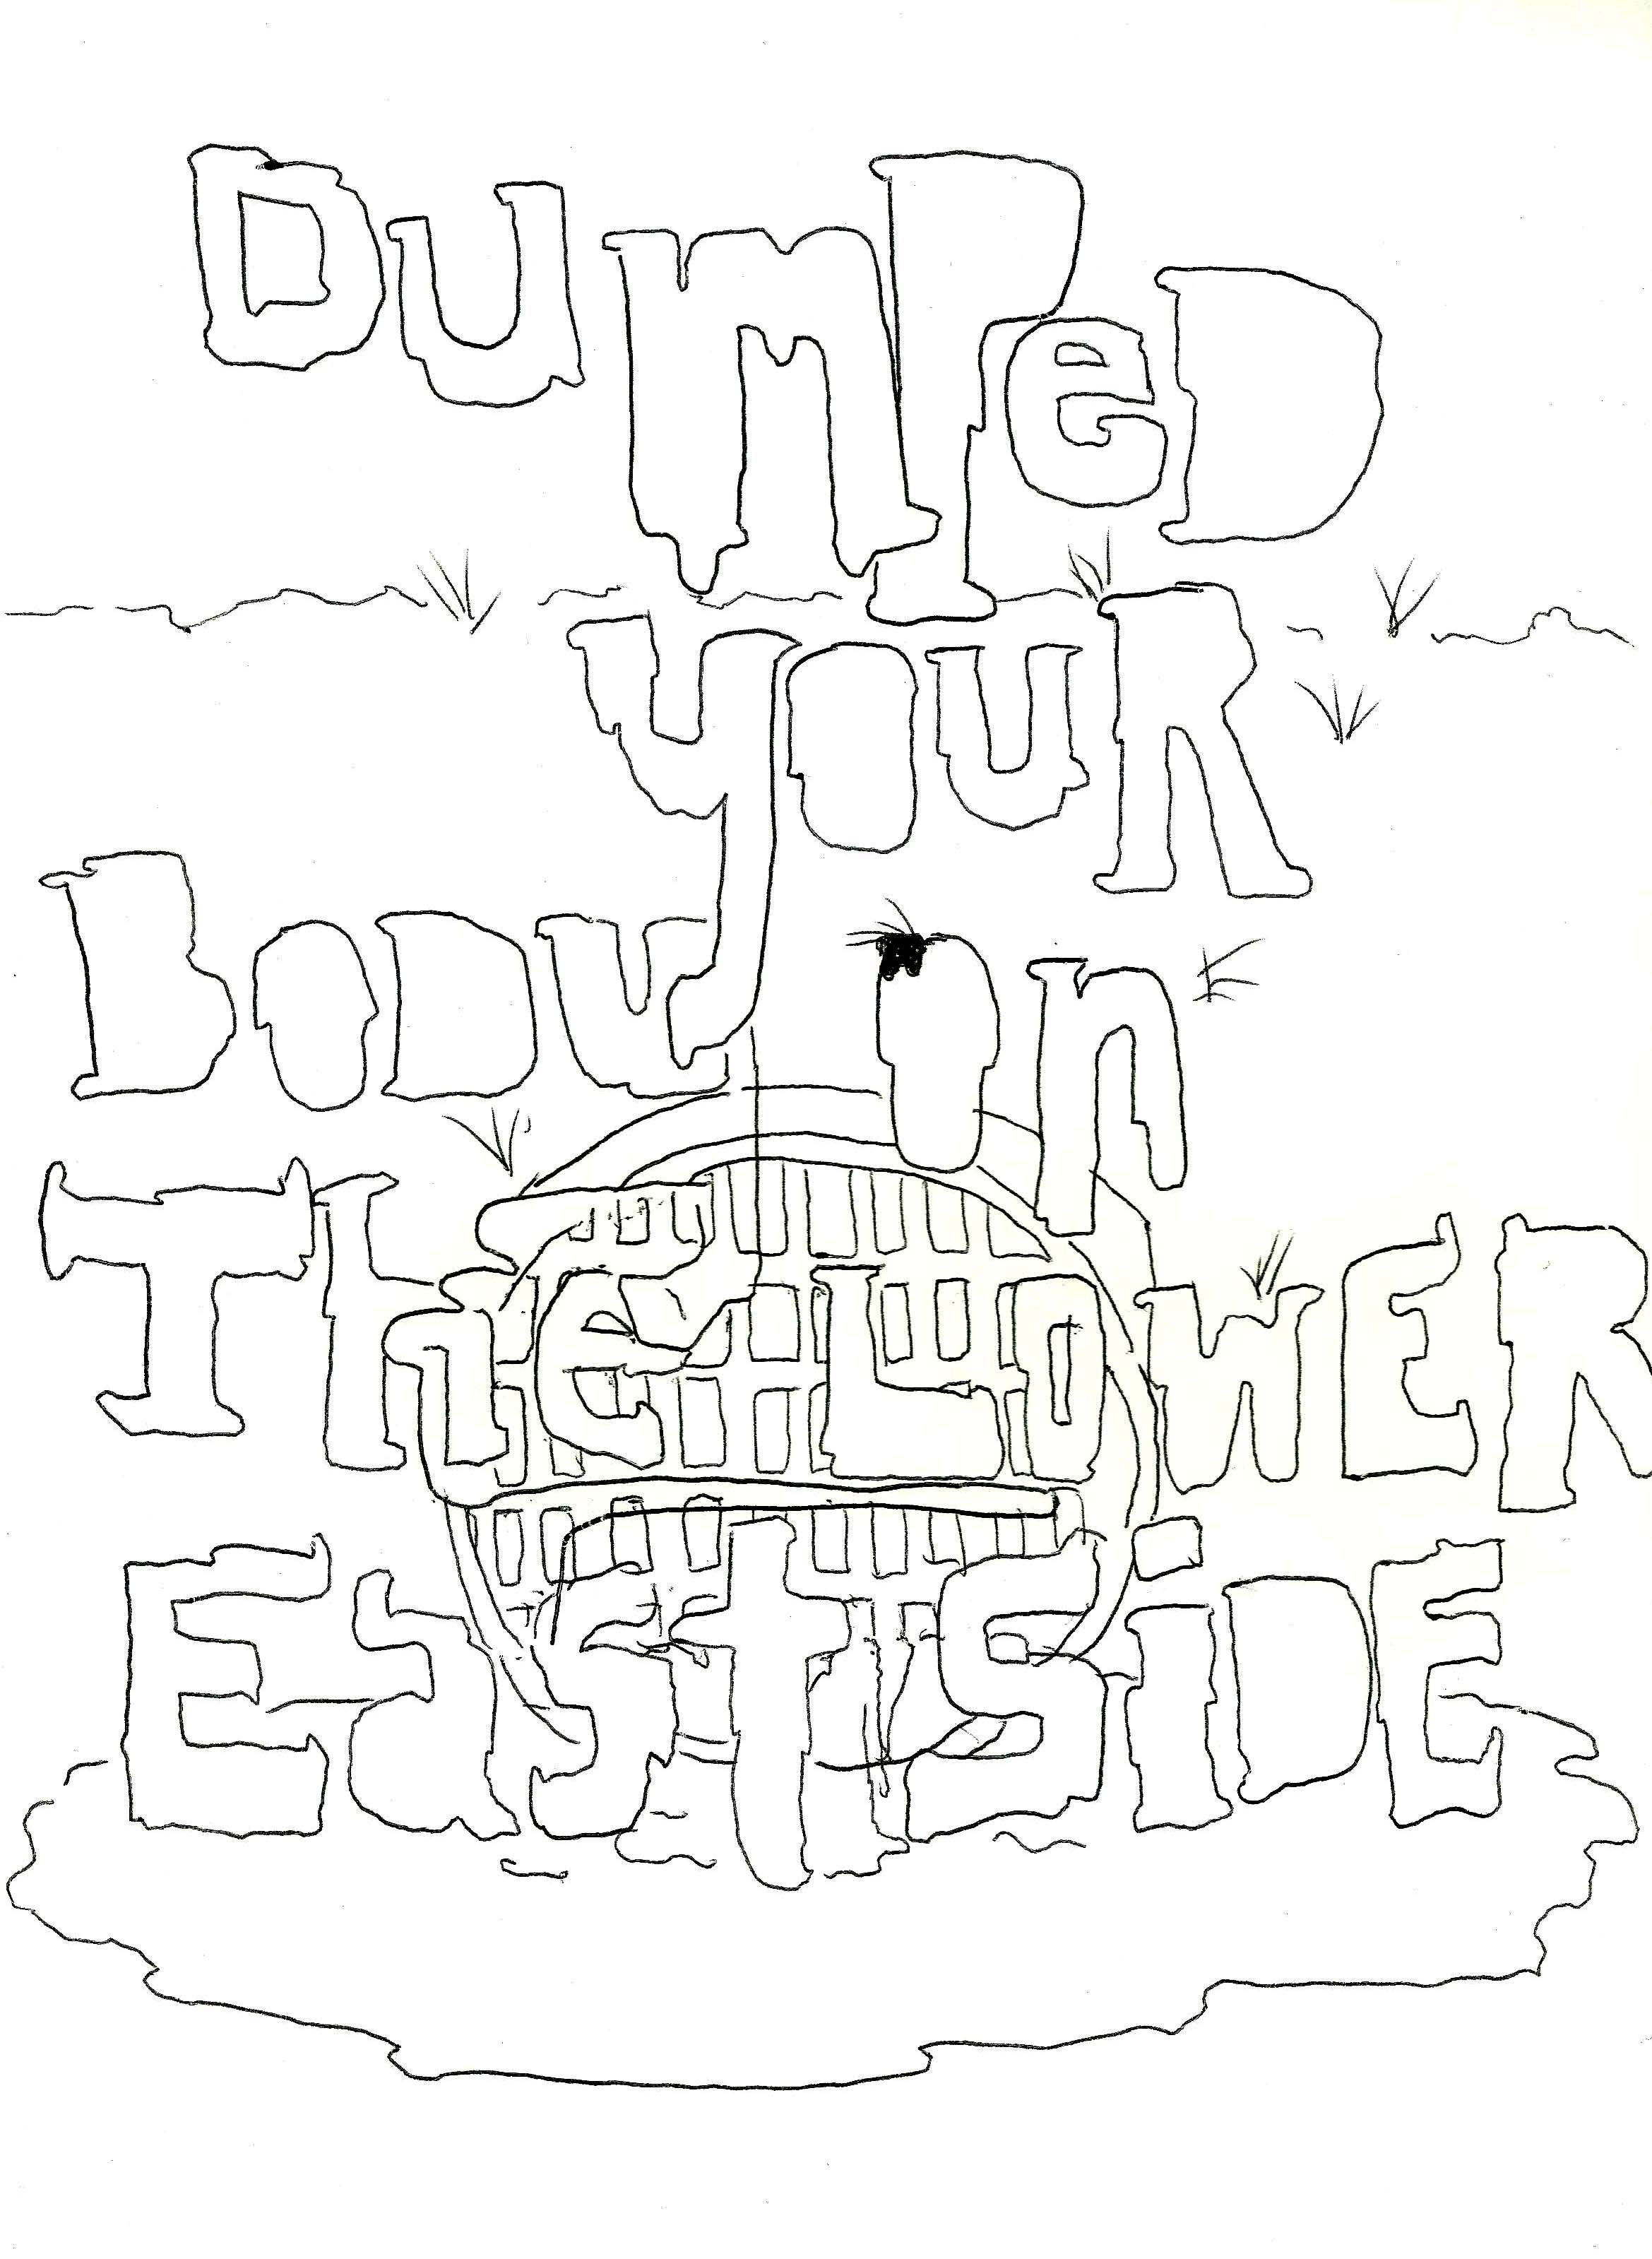 DumPeD
youR
BoDy on
The LoWER
EaSt SiDE